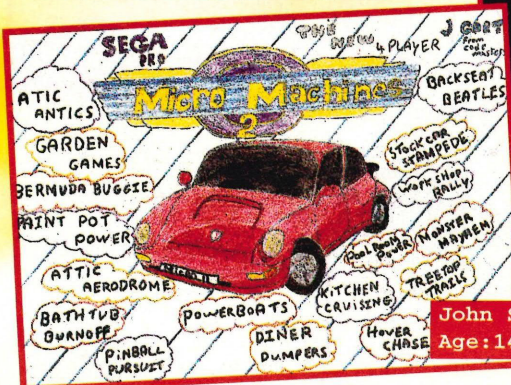 SEGA
PRO
THE
NEW
4 PLAYER
J CART
From
code
masters
Micro Machines
2
ATIC
ANTICS
GARDEN
GAMES
BERMUDA BUGGIE
PAINT POT
POWER
ATTIC
AERODROME
BATHTUB
BURNOFF
PINBALL
PURSUIT
POWERBOATS
DINER
DUMPERS
KITCHEN
CRUISING
HOVER
CHASE
TREETOP
TRAILS
MONSTER
MAYHEM
POOLROOM
POWER
WORK SHOP
RALLY
STOCK CAR
STAMPEDE
BACKSEAT
BEATLES
John S
Age:14